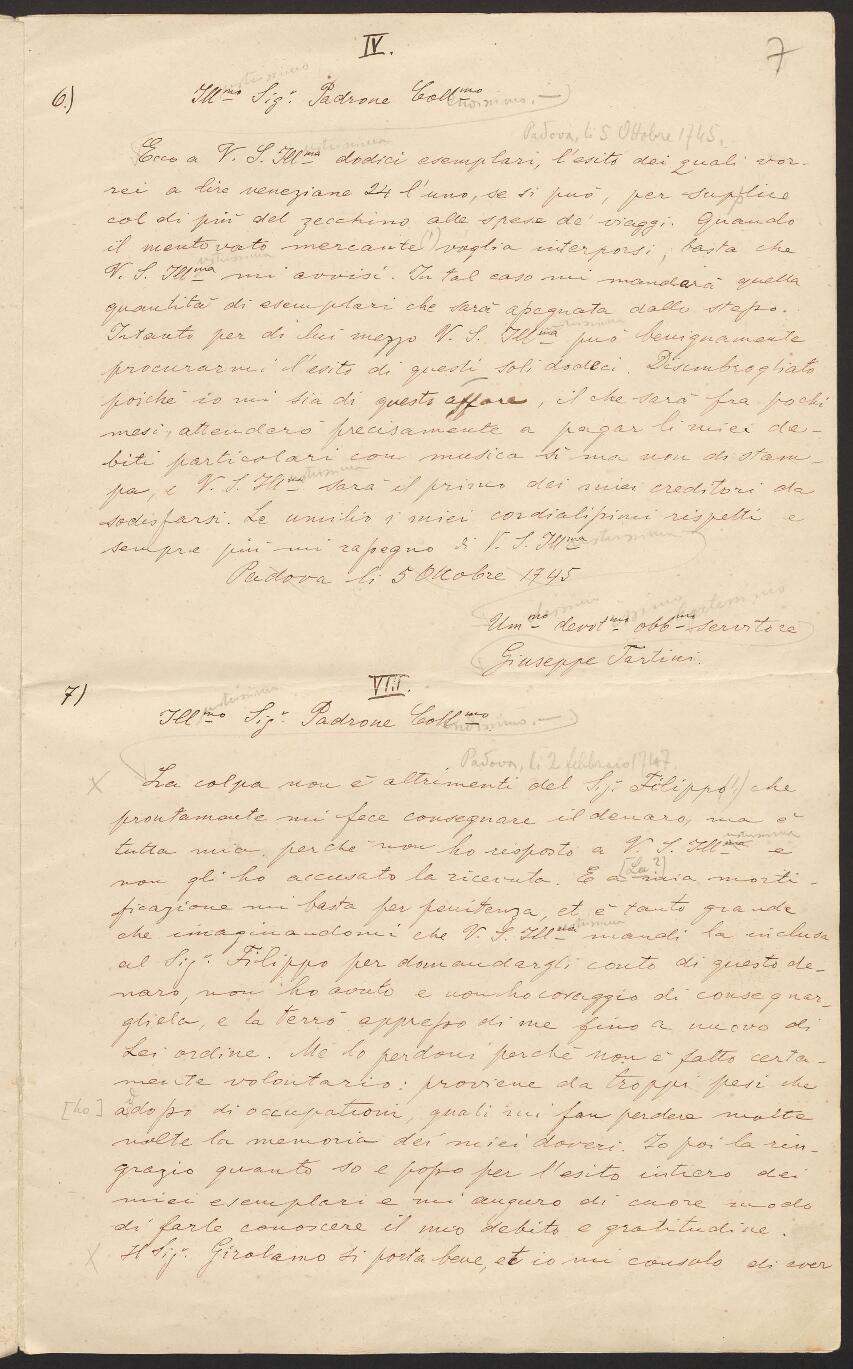 IV.
7
6.) Ill.mo Sig.r Padrone Coll.mo
Padova, li 5 Ottobre 1745.
Ecco a V. S. Ill.ma dodici esemplari, l'esito dei quali vor-
rei a lire veneziane 24 l'uno, se si può, per suplice
col di più del zecchino alle spese de' viaggi. Quando
il mentovato mercante (1) voglia interporsi, basta che
V. S. Ill.ma mi avvisi. In tal caso mi manderà quella
quantità di esemplari che sarà assegnata dallo stesso.
Intanto per di lui mezzo V. S. Ill.ma può benignamente
procurarmi l'esito di questi soli dodeci. Disimbrogliato
poichè io mi sia di questo affare, il che sarà fra pochi
mesi, attenderò precisamente a pagar li miei de-
biti particolari con musica sì ma non di stam-
pa, e V. S. Ill.ma sarà il primo dei miei creditori da
sodisfarsi. Le umilio i miei cordialissimi rispetti e
sempre più mi rassegno di V. S. Ill.ma
Padova li 5 Ottobre 1745
Um.mo devot.mo obb.mo servitore
Giuseppe Tartini.
VIII.
7) Ill.mo Sig.r Padrone Coll.mo
Padova, li 2 febbraio 1747.
X La colpa non è altrimenti del Sig.r Filippo (1) che
prontamente mi fece consegnare il denaro, ma è
tutta mia, perchè non ho risposto a V. S. Ill.ma e
[La?]
non gli ho accusato la ricevuta. E a mia morti-
ficazione mi basta per penitenza, et è tanto grande
che imaginandomi che V. S. Ill.ma mandi la inclusa
al Sig.r Filippo per domandargli conto di questo de-
naro, non ho avuto e non ho coraggio di consegnar-
gliela, e la terrò appresso di me fino a nuovo di
Lei ordine. Me lo perdoni perchè non è fatto certa-
mente volontario: proviene da troppi pesi che
[ho] adosso di occupationi, quali mi fan perdere molte
volte la memoria dei miei doveri. Io poi la rin-
grazio quanto so e posso per l'esito intiero dei
miei esemplari e mi auguro di cuore modo
di farle conoscere il mio debito e gratitudine.
X Il Sig.r Girolamo si porta bene, et io mi consolo di aver